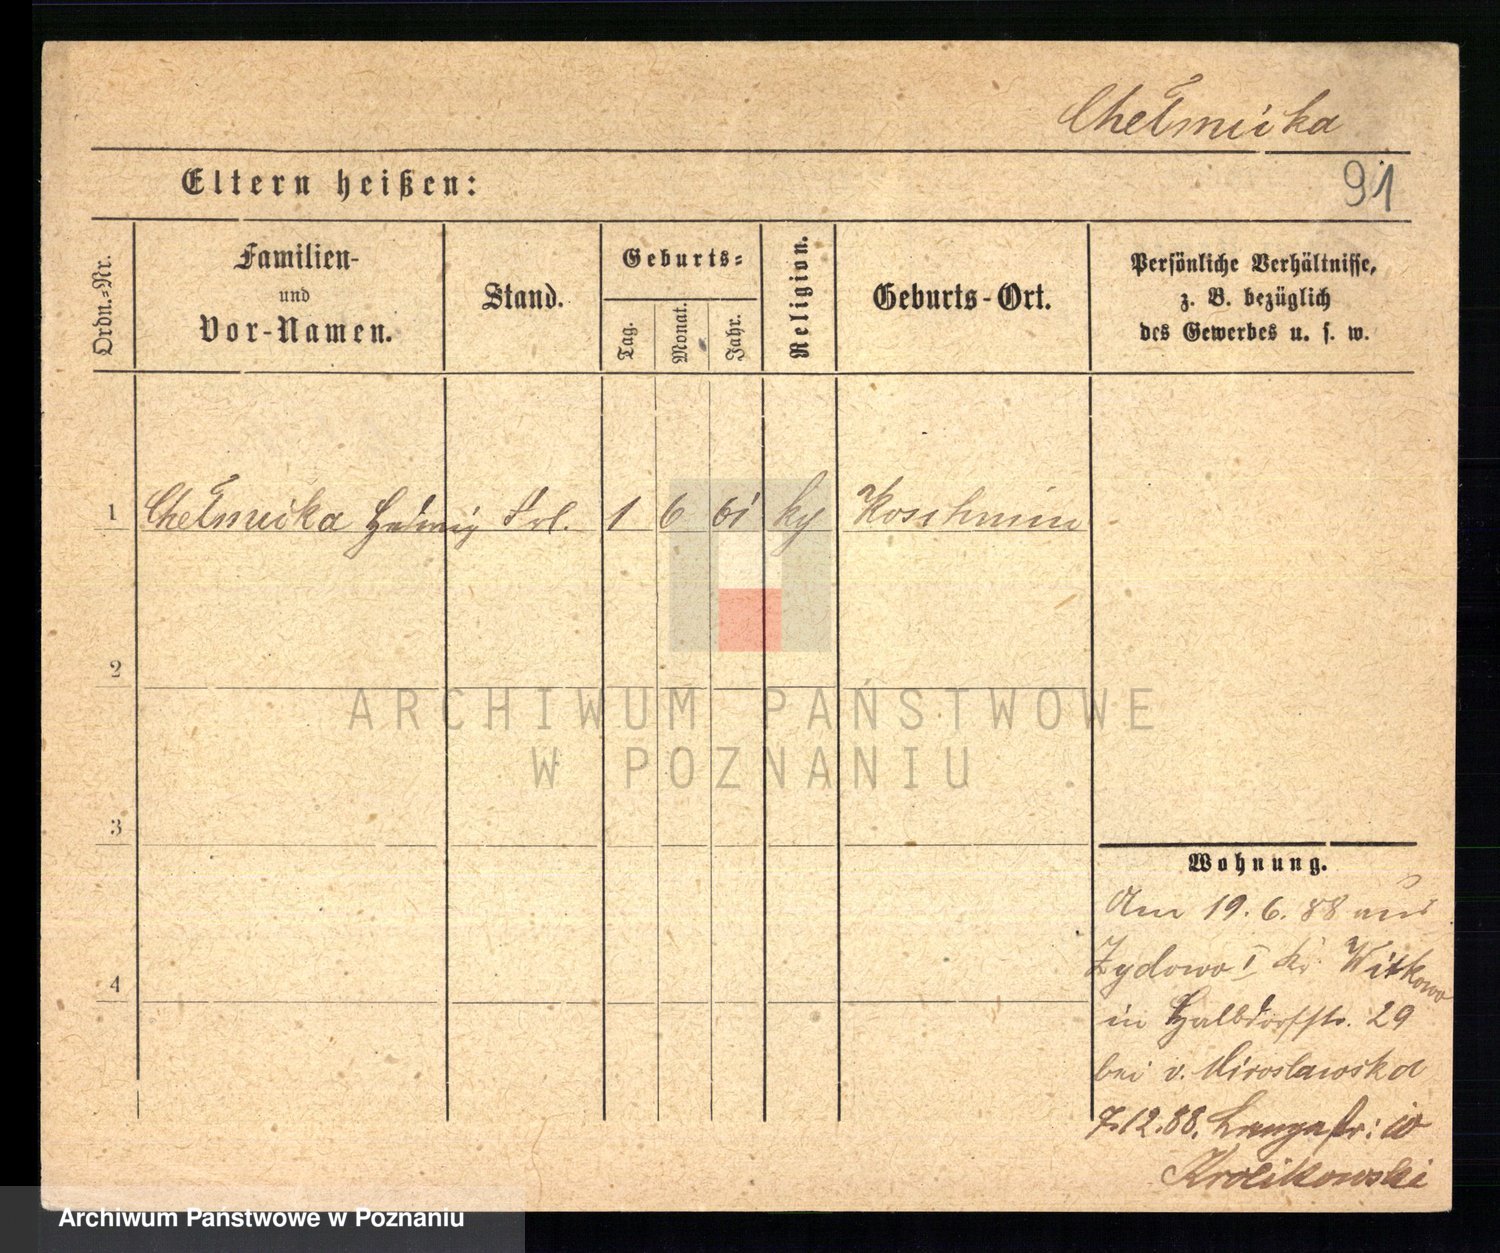 Chełmicka
91
Eltern heißen:
Ordn.=Nr.
Familien-
und
Vor-Namen.
Stand.
Geburts=
Tag.
Monat.
Jahr.
Religion.
Geburts-Ort.
Persönliche Verhältnisse,
z. B. bezüglich
des Gewerbes u. s. w.
1 Chełmicka Hedwig Frl. 1 6 61 ky Koschmin
2
3
4
Wohnung.
Am 19.6.88 aus
Zydowo I Kr Witkowo
in Halbdorfstr. 29
bei v. Mirosławska
7.12.88. Langestr: 10
Krolikowski
ARCHIWUM PAŃSTWOWE
W POZNANIU
Archiwum Państwowe w Poznaniu